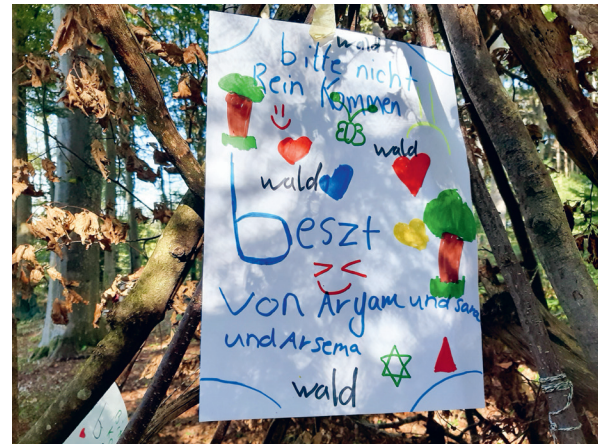 wald
bitte nicht
Rein Kommen
wald
wald
beszt
von Aryam und sara
und Arsema
wald